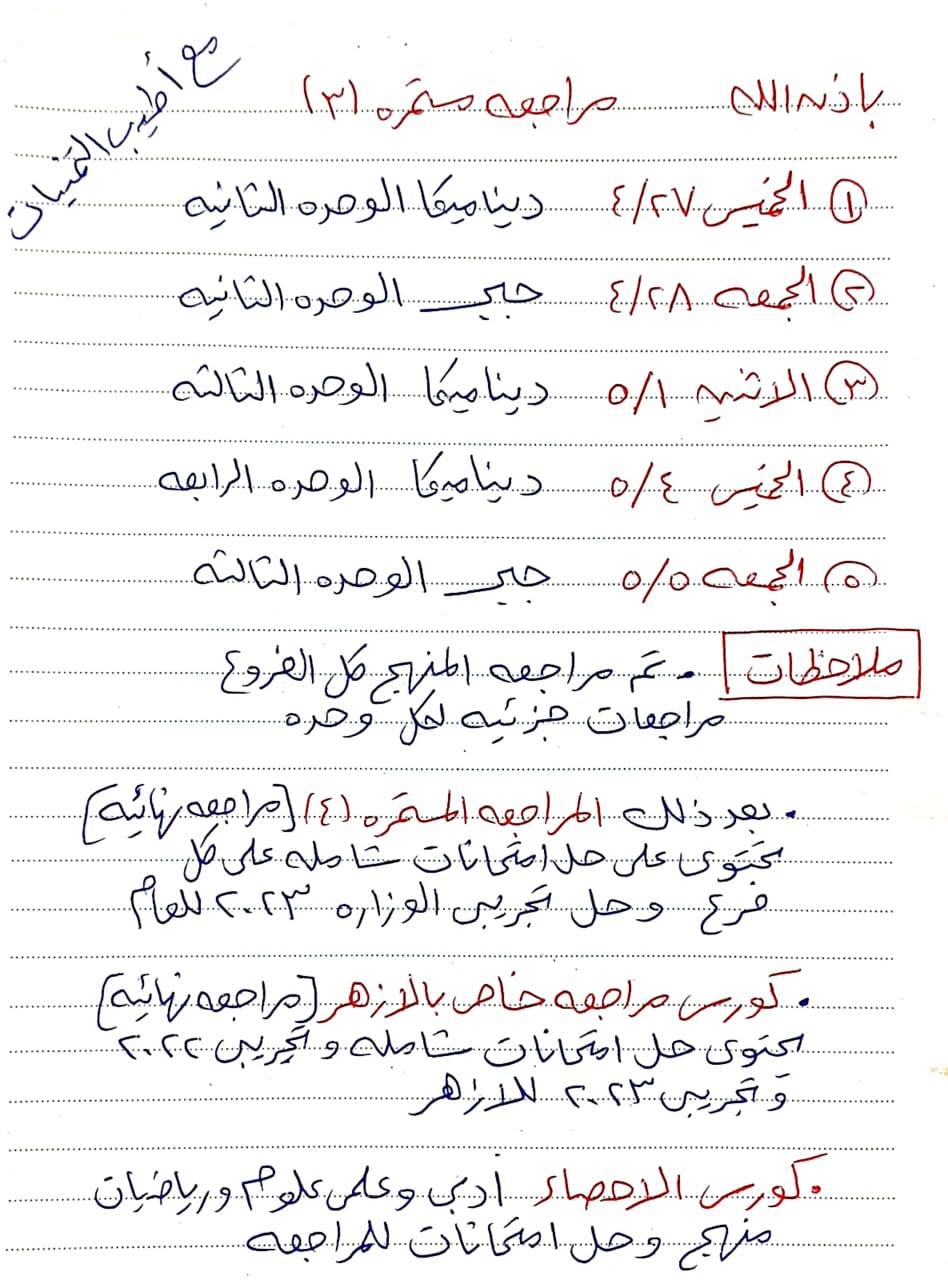 مع أطيب التمنيات
باذن الله مراجعه مستمره (٣)
١ الخميس ٤/٢٧ ديناميكا الوحده الثانيه
٢ الجمعه ٤/٢٨ جبر الوحده الثانيه
٣ الاثنين ٥/١ ديناميكا الوحده الثالثه
٤ الخميس ٥/٤ ديناميكا الوحده الرابعه
٥ الجمعه ٥/٥ جبر الوحده الثالثه
ملاحظات • تم مراجعه المنهج كل الفروع
مراجعات جزئيه لكل وحده
• بعد ذلك المراجعه المستمره (٤) [مراجعه نهائيه]
تحتوى على حل امتحانات شامله على كل
فرع وحل تجريبى الوزاره ٢٠٢٣ للعام
• كورس مراجعه خاص بالازهر [مراجعه نهائيه]
يحتوى حل امتحانات شامله وتجريبى ٢٠٢٢
وتجريبى ٢٠٢٣ للازهر
• كورس الاحصاء أدبى وعلمى علوم ورياضيات
منهج وحل امتحانات للمراجعه